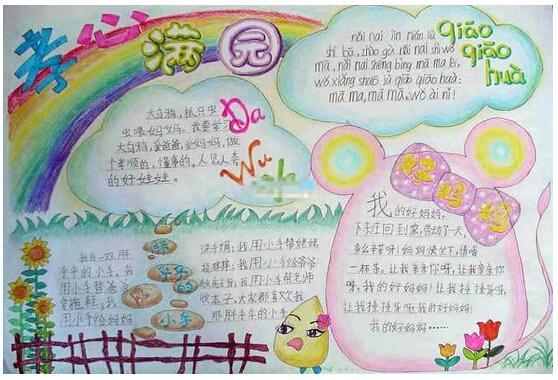 孝心满园
nǎi nai jīn nián liù
shí bā, zhào gù nǎi nai shì wǒ
mā, nǎi nai shēng bìng mā ma lèi,
wǒ xiǎng shuō jù qiāo qiāo huà:
mā ma, mā ma, wǒ ài nǐ!
qiāo
qiāo
huà
大乌鸦,抓只虫
虫喂妈妈。我要学习
大乌鸦,爱爸爸,爱妈妈,做
个孝顺的、懂事的、人见人爱
的好娃娃。
Da
Wu
好妈妈
我的好妈妈,
下班回到家,劳动了一天,
多么辛苦呀!妈妈快坐下,请喝
一杯茶。让我亲亲你呀,让我亲亲你
呀,我的好妈妈!让我
我的好妈妈!
我的好妈妈……
胖
乎乎
的
小手
我有一双胖
乎乎的小手。我
用小手替爸爸
拿拖鞋,我
用小手给妈妈
洗手绢;我用小手帮姥姥
挠痒痒;我用小手给爷爷
我用小手帮老师
收本子。大家都喜欢我
那胖乎乎的小手。